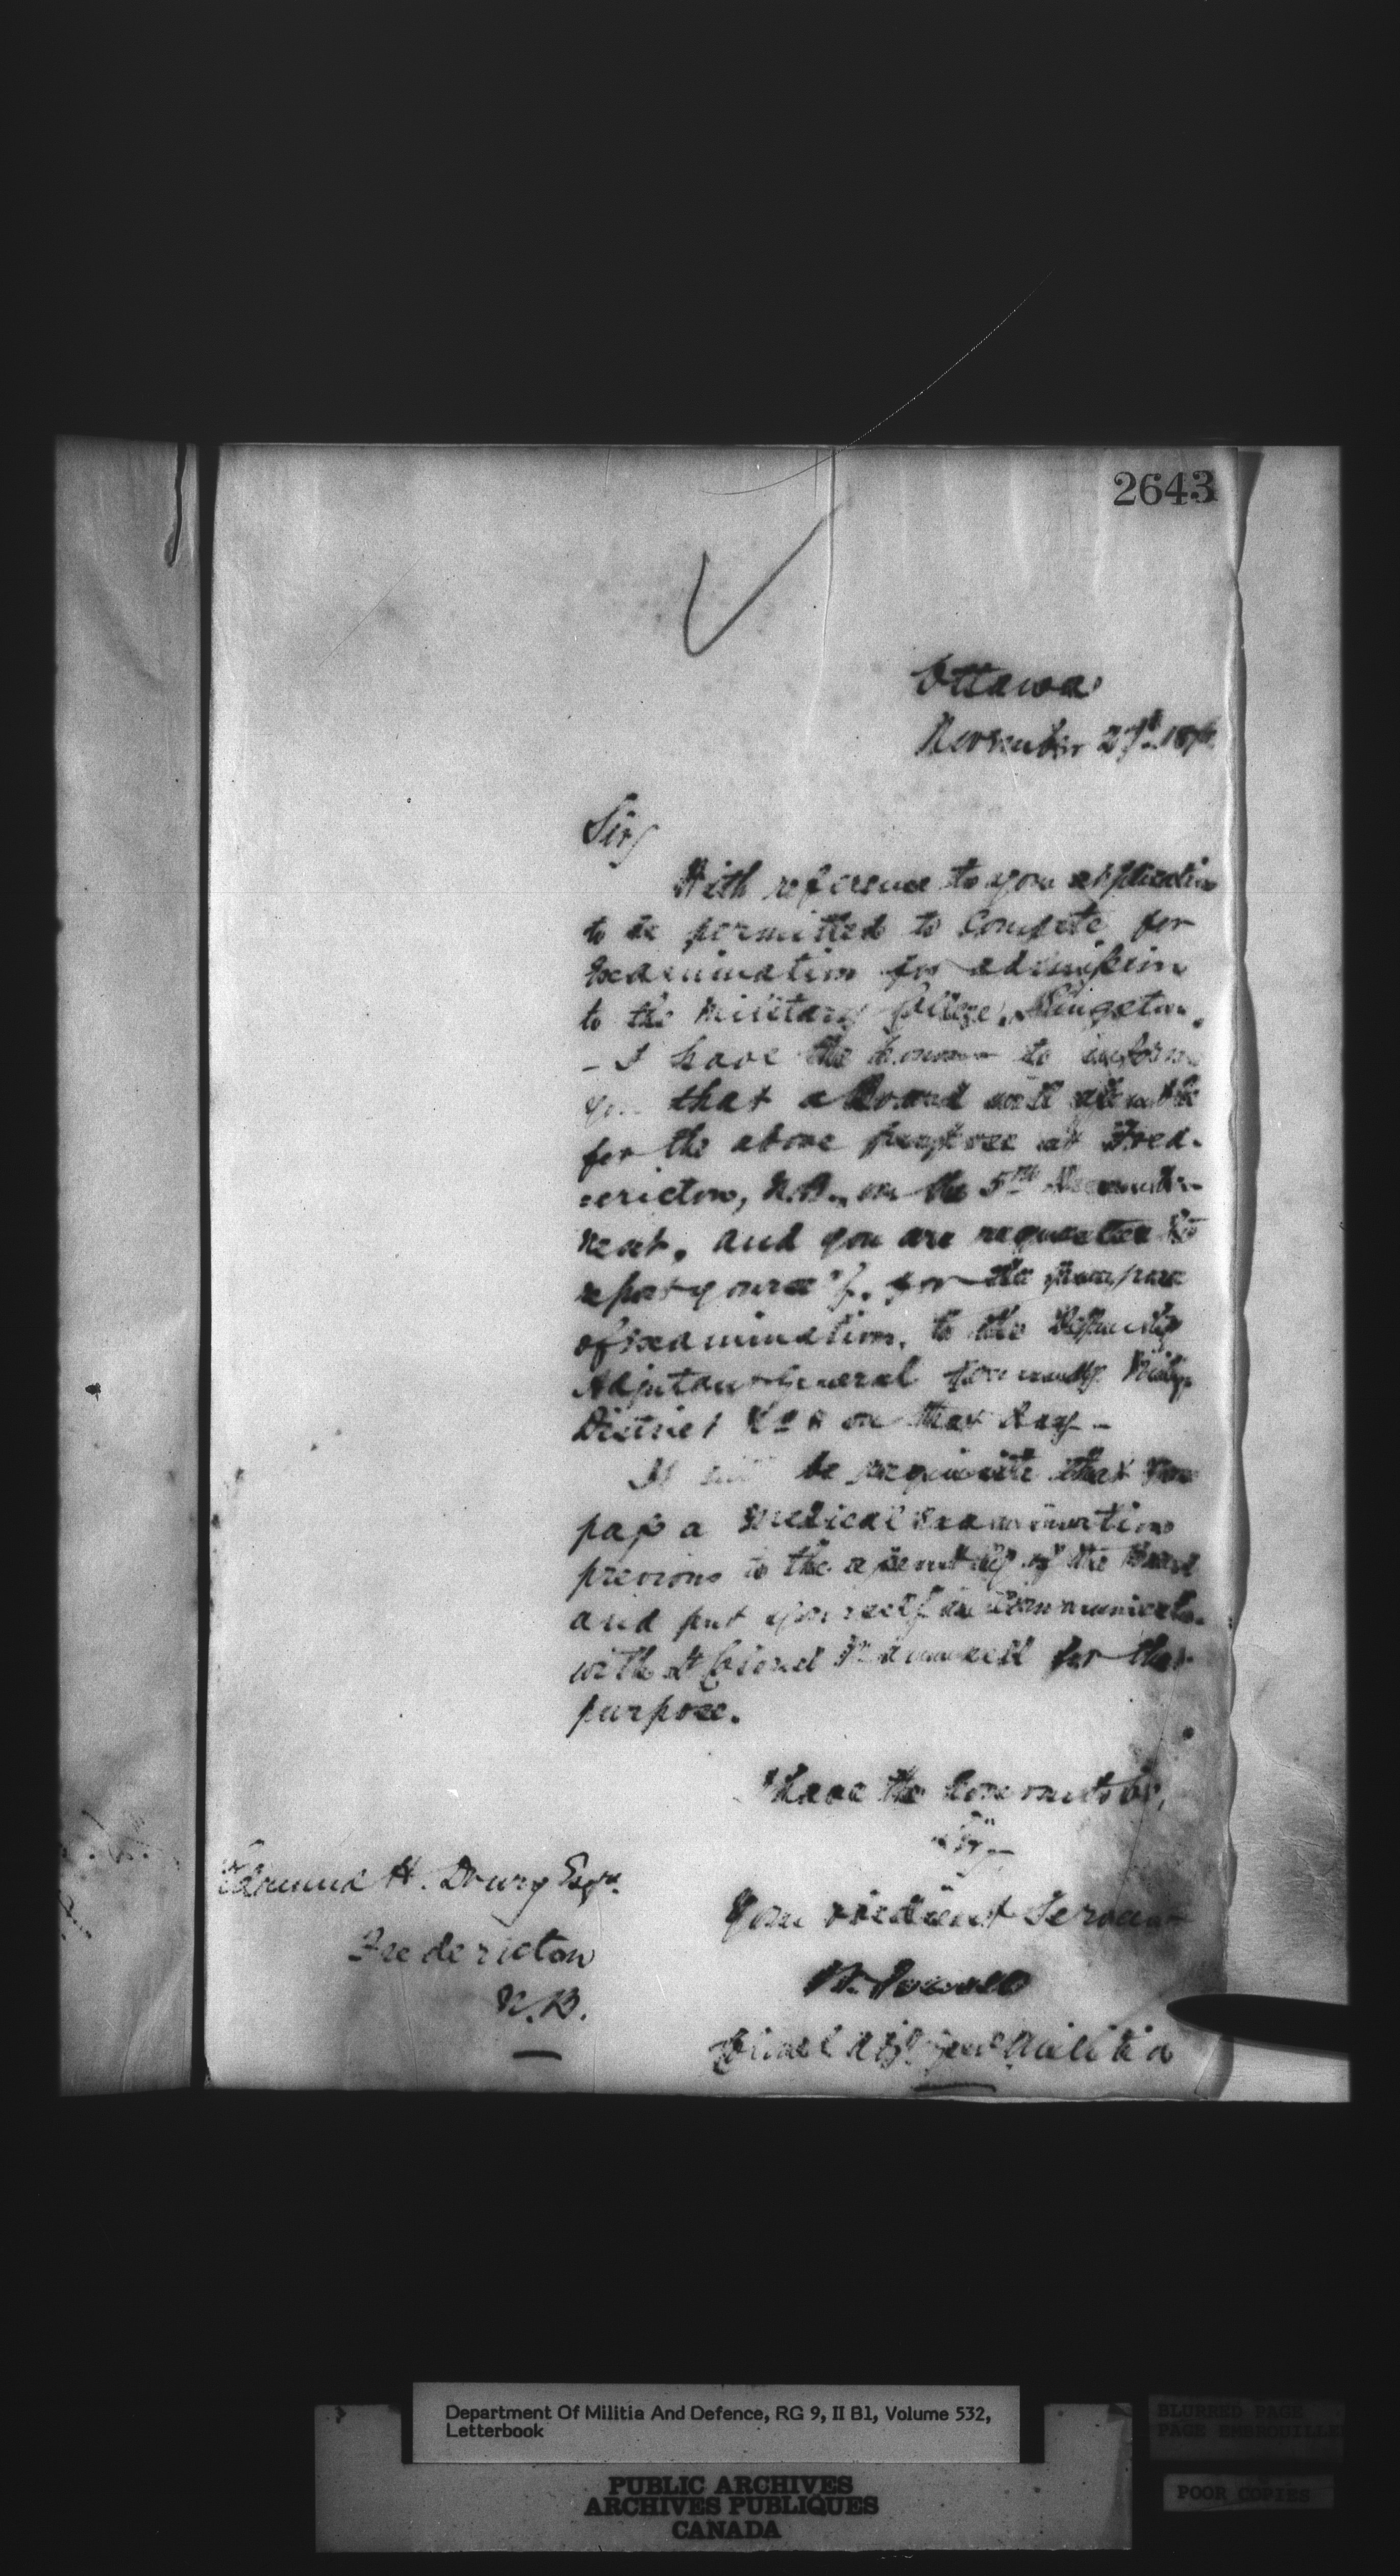 2643
Ottawa
November 27th 187
Sir/
With reference to your application
to be permitted to compete for
Examination for admission
to the Military College, Kingston,
- I have the honor to inform
you that a Board will assemble
for the above purpose at Fred-
-ericton, N.B., on the 5th
next, and you are requested to
report yourself, for the purpose
of Examination, to the Deputy
Adjutant General Military
District No on that day -
It will be requisite that you
pass a Medical Examination
previous to the assembly of the Board
and put yourself in communication
with Lt Colonel Maunsell for that
purpose.
I have the honor to be,
Sir,
Your obedient Servant
W. Powell
Colonel Adjt Genl Militia
Edmund H. Drury Esqr.
Fredericton
N.B.
Department Of Militia And Defence, RG 9, II B1, Volume 532,
Letterbook
PUBLIC ARCHIVES
ARCHIVES PUBLIQUES
CANADA
BLURRED PAGE
PAGE EMBROUILLE
POOR COPIES